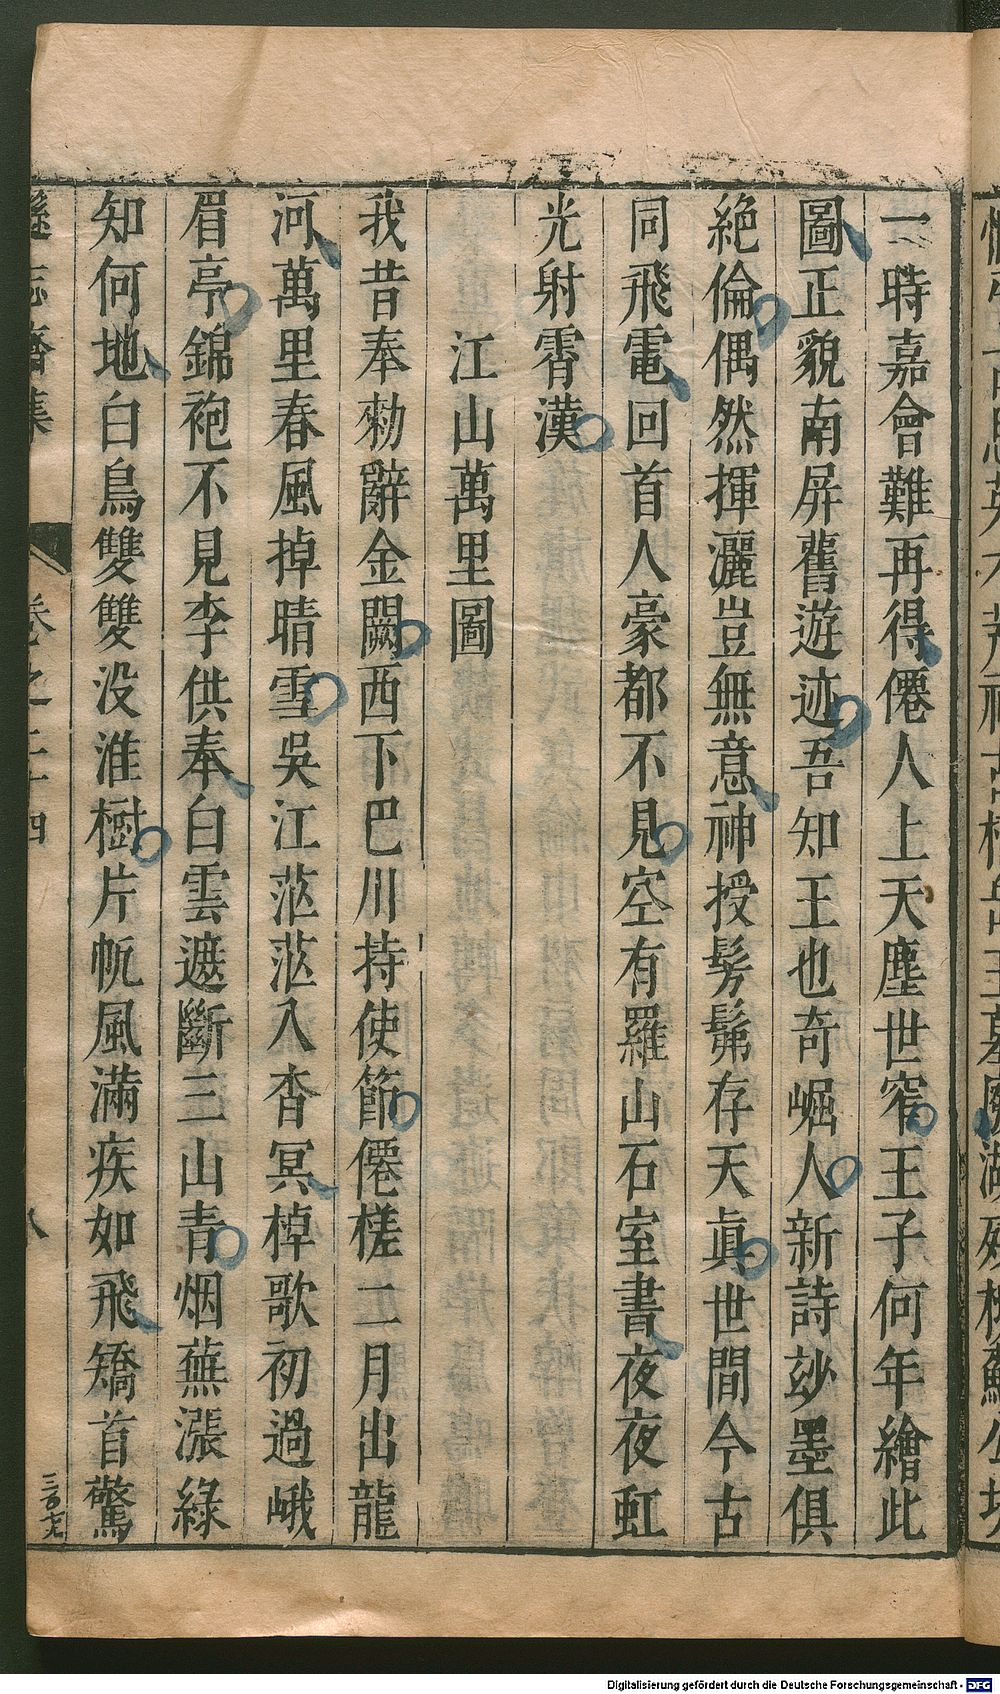 一時嘉會難再得僊人上天塵世窄王子何年繪此
圖正貌南屏舊遊迹吾知王也奇崛人新詩玅墨俱
絶倫偶然揮灑豈無意神授髣髴存天眞世間今古
同飛電回首人豪都不見空有羅山石室書夜夜虹
光射霄漢
江山萬里圖
我昔奉勑辭金闕西下巴川持使節僊槎二月出龍
河萬里春風掉晴雪吳江茫茫入杳冥棹歌初過峨
眉亭錦袍不見李供奉白雲遮斷三山青烟蕪漲綠
知何地白鳥雙雙没淮樹片帆風滿疾如飛矯首驚
遜志齋集 卷之二十四 八
三百七九
Digitalisierung gefördert durch die Deutsche Forschungsgemeinschaft - DFG